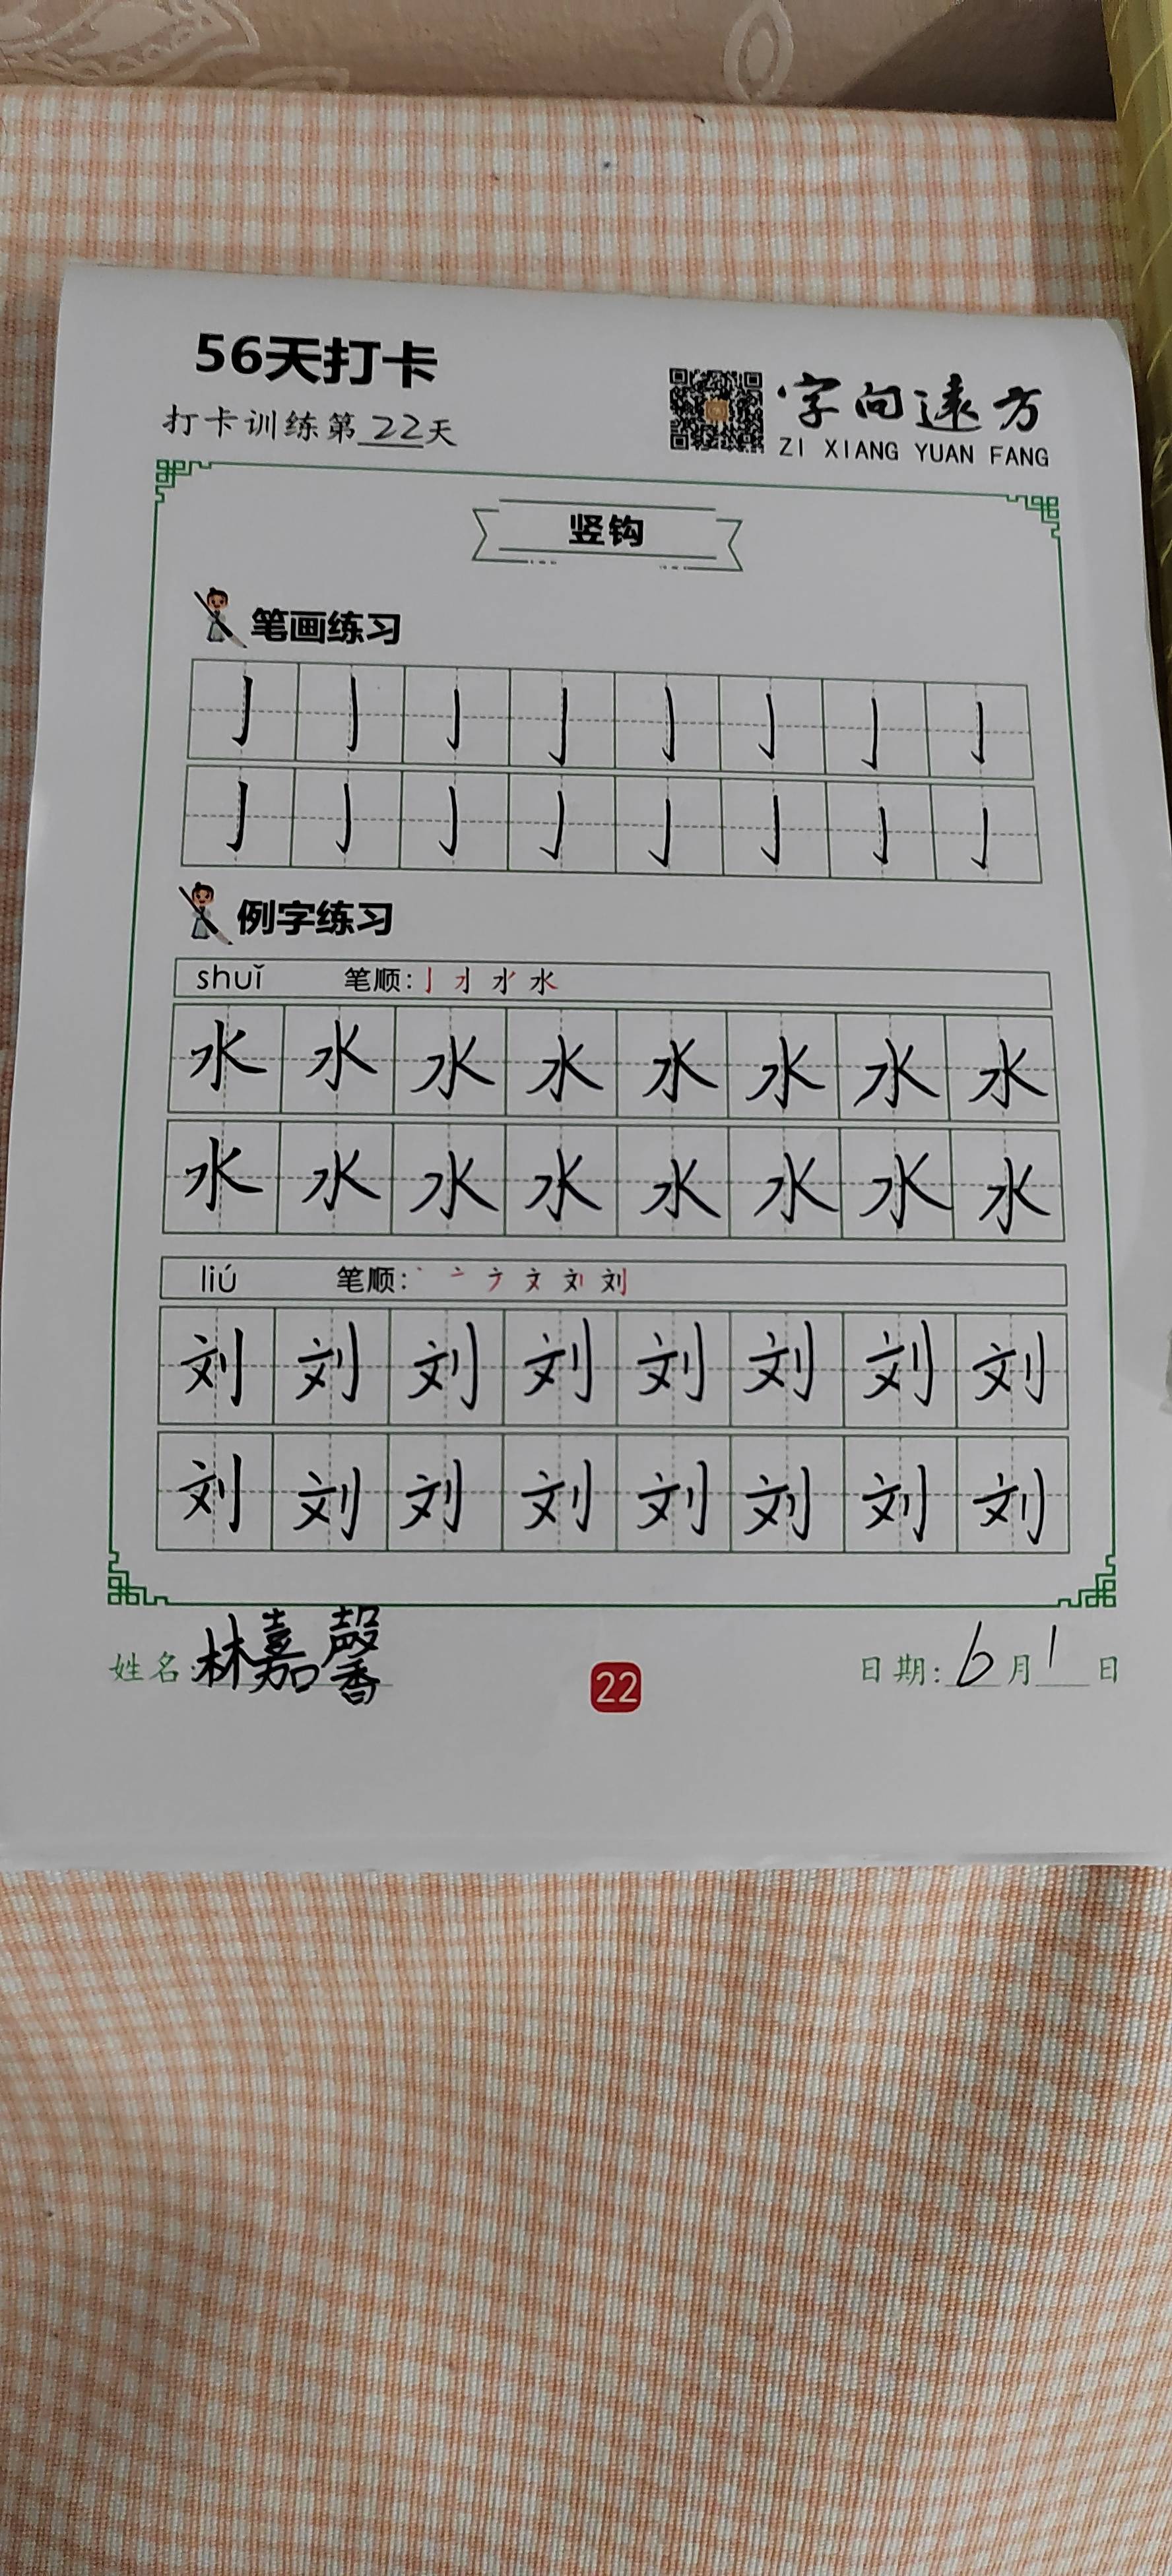 56天打卡
打卡训练第22天
字向远方
ZI XIANG YUAN FANG
竖钩
笔画练习
亅亅亅亅亅亅亅亅
亅亅亅亅亅亅亅亅
例字练习
shuǐ 笔顺: 水
水水水水水水水水
水水水水水水水水
liú 笔顺: 丶 亠 ナ 文 刘
刘刘刘刘刘刘刘刘
刘刘刘刘刘刘刘刘
姓名:林嘉馨
22
日期:6月1日